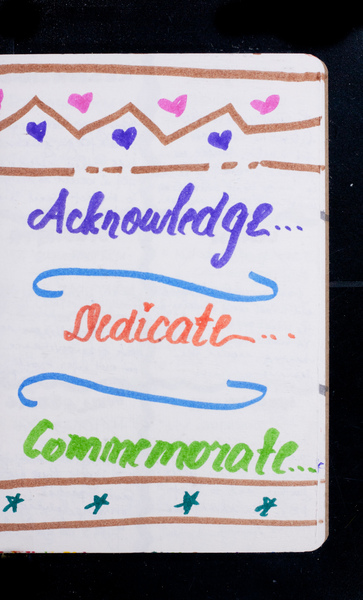 Acknowledge...
Dedicate...
Commemorate...